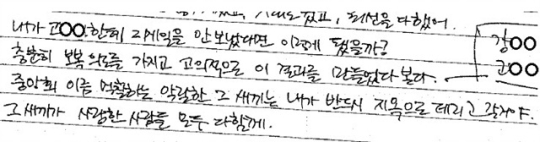 있고, 기대도 있고, 최선을 다했어.
내가 고○○한테 그 메일을 안 보냈다면 이렇게 됐을까?
충분히 보복 의도를 가지고 고의적으로 이 결과를 만들었다 본다.
강○○
고○○
중앙회 이름 먹칠하는 악랄한 그 새끼는 내가 반드시 지옥으로 데리고 갈거야.
그 새끼가 사랑한 사람들 모두 다함께.